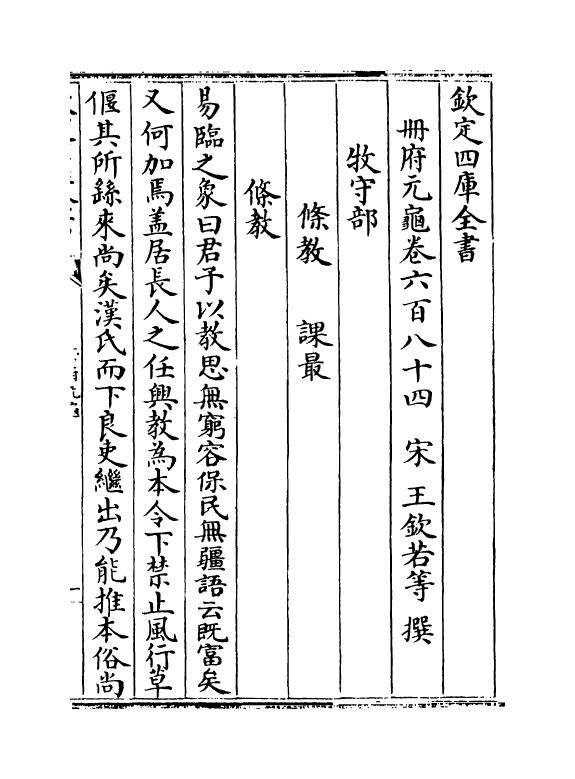 欽定四庫全書
冊府元龜卷六百八十四　宋　王欽若等　撰
牧守部
條教　課最
條教
易臨之象曰君子以教思無窮容保民無疆語云既富矣
又何加焉蓋居長人之任興教為本令下禁止風行草
偃其所繇來尚矣漢氏而下良吏繼出乃能推本俗尚